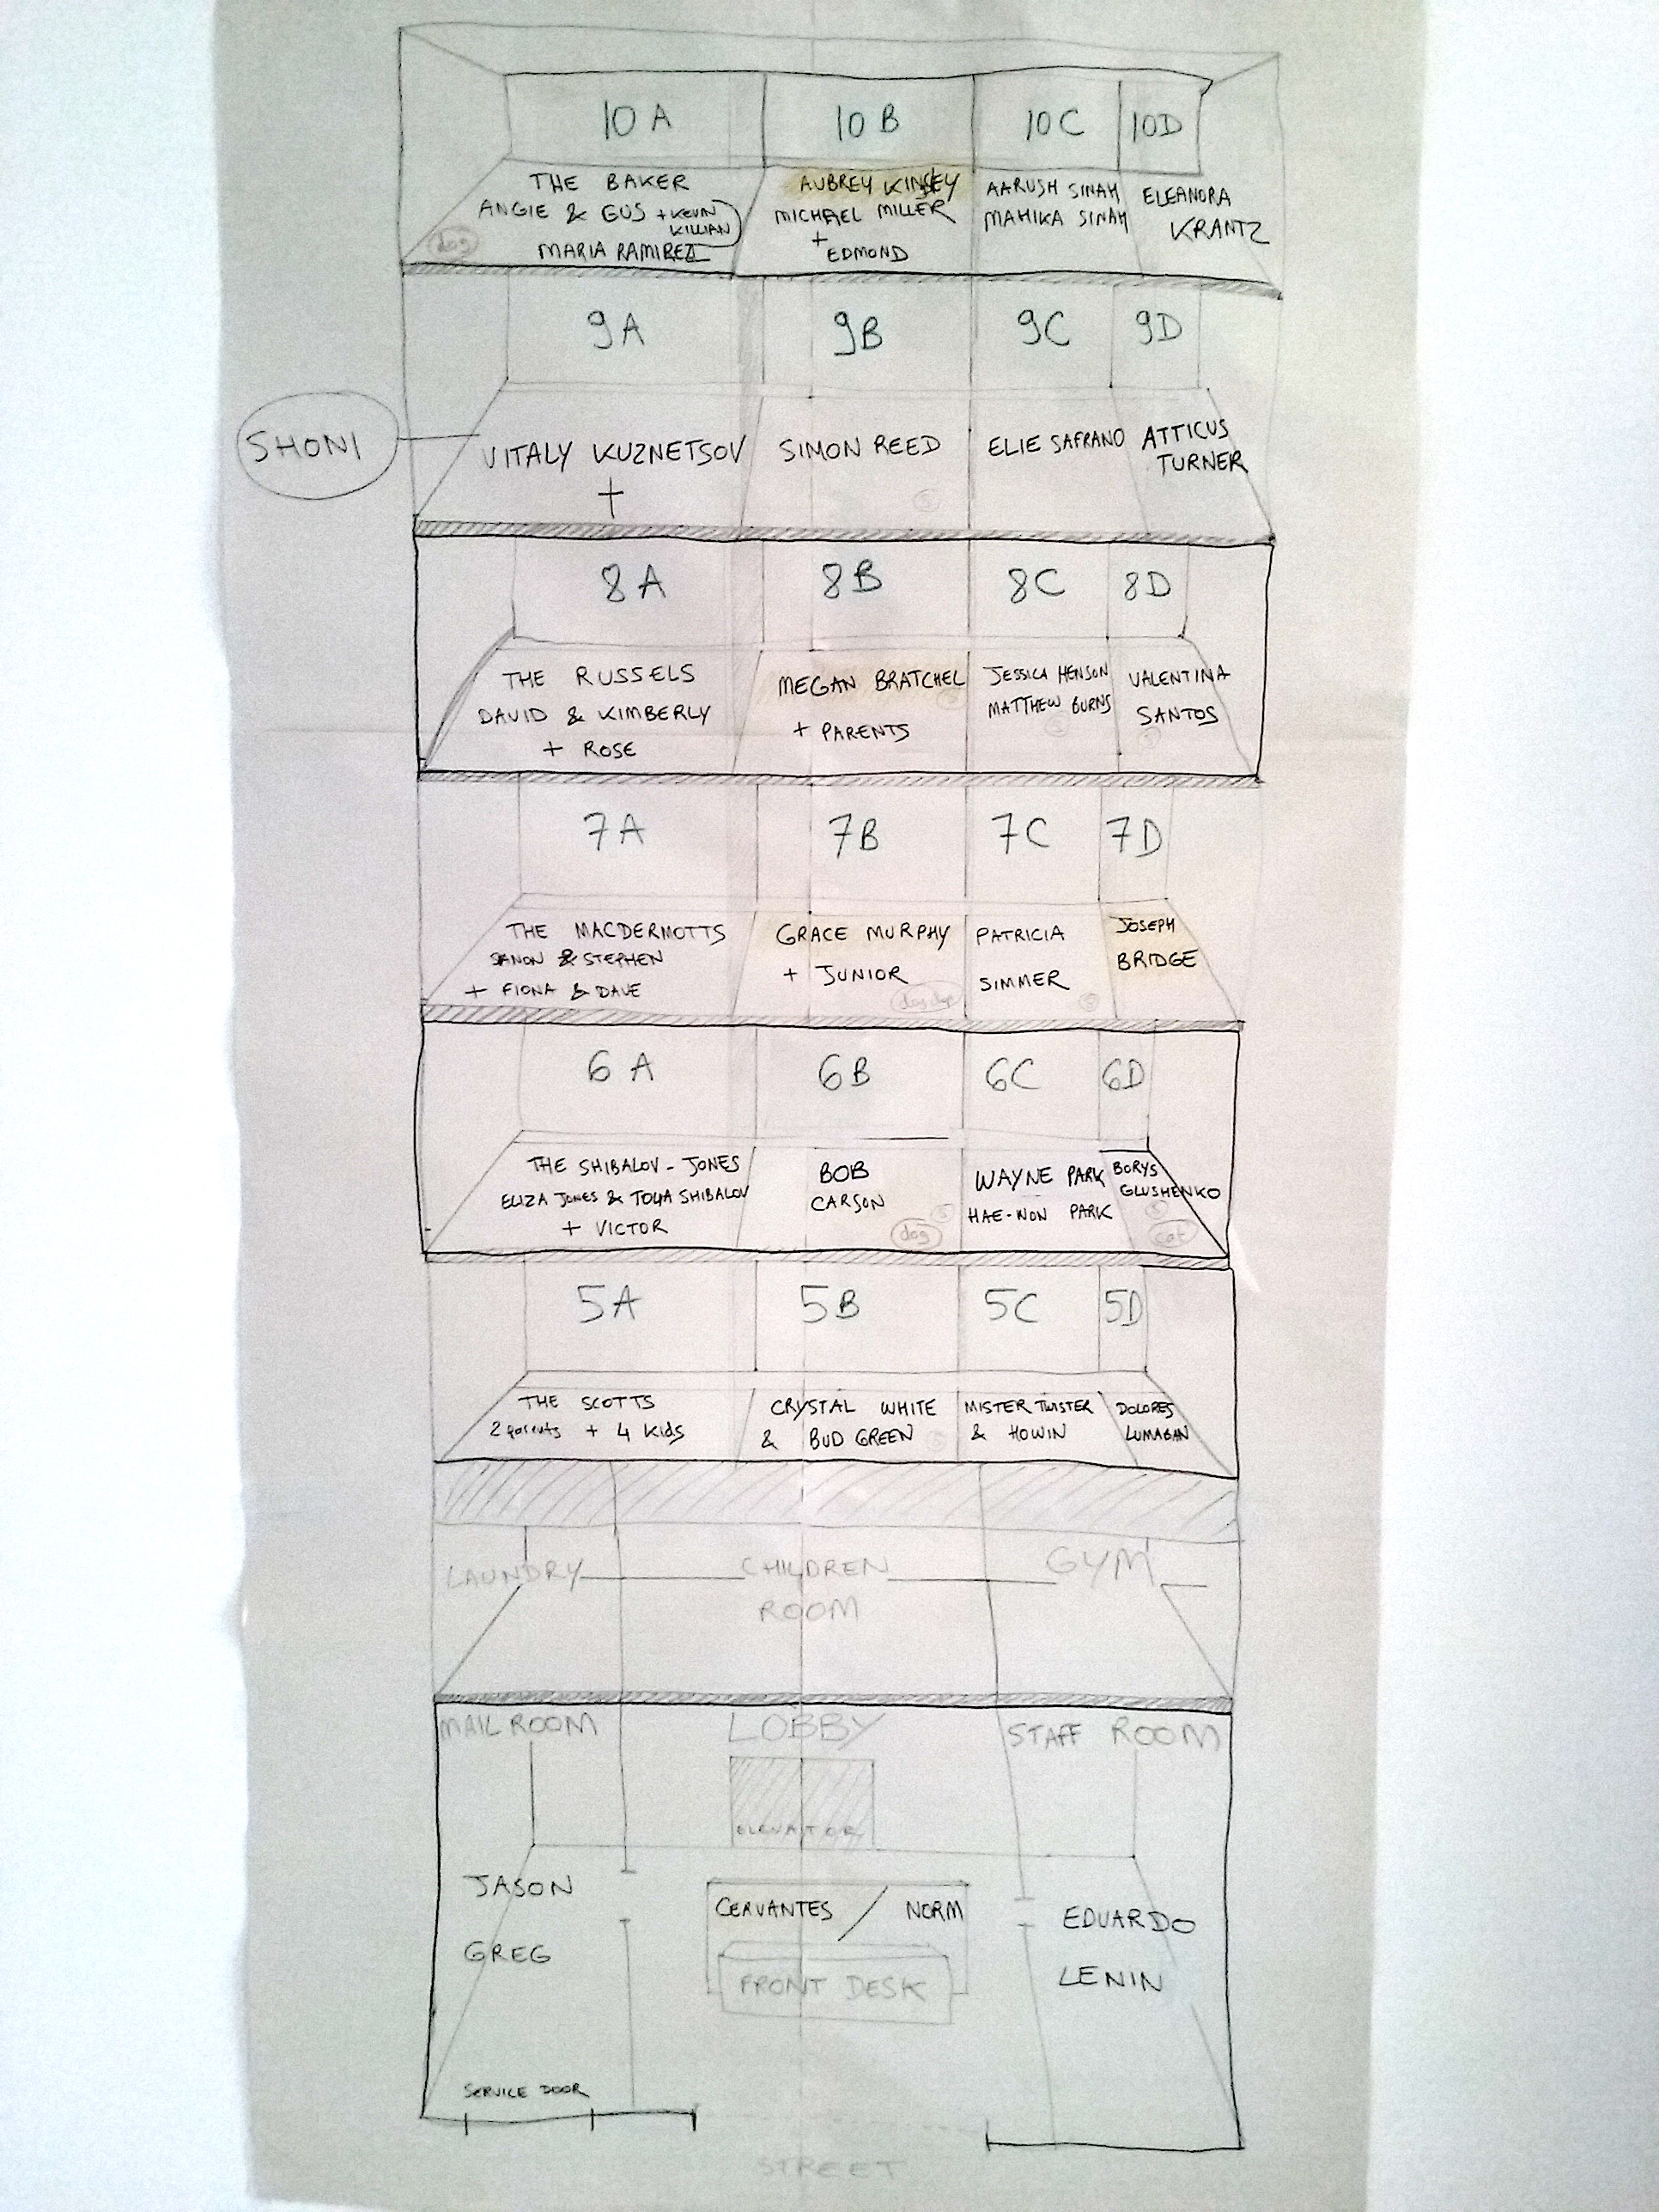 10A 10B 10C 10D
THE BAKER
ANGIE & GUS + KEVIN
KILLIAN
MARIA RAMIREZ
dog
AUBREY KINSEY
MICHAEL MILLER
+
EDMOND
AARUSH SINAH
MAHIKA SINAH
ELEANORA
KRANTZ
9A 9B 9C 9D
SHONI
VITALY KUZNETSOV
SIMON REED
ELIE SAFRANO
ATTICUS
TURNER
8A 8B 8C 8D
THE RUSSELS
DAVID & KIMBERLY
+ ROSE
MEGAN BRATCHEL
+ PARENTS
JESSICA HENSON
MATTHEW BURNS
VALENTINA
SANTOS
7A 7B 7C 7D
THE MACDERMOTTS
& STEPHEN
+ FIONA & DAVE
GRACE MURPHY
+ JUNIOR
PATRICIA
SIMMER
JOSEPH
BRIDGE
6A 6B 6C 6D
THE SHIBALOV-JONES
ELIZA JONES & TOLYA SHIBALOV
+ VICTOR
BOB
CARSON
dog
WAYNE PARK
HAE-WON PARK
BORYS
GLUSHENKO
cat
5A 5B 5C 5D
THE SCOTTS
2 parents + 4 kids
CRYSTAL WHITE
& BUD GREEN
MISTER TWISTER
& HOWIN
DOLORES
LUMABAN
LAUNDRY
CHILDREN
ROOM
GYM
MAIL ROOM
LOBBY
STAFF ROOM
ELEVATOR
JASON
GREG
CERVANTES / NORM
FRONT DESK
EDUARDO
LENIN
SERVICE DOOR
STREET